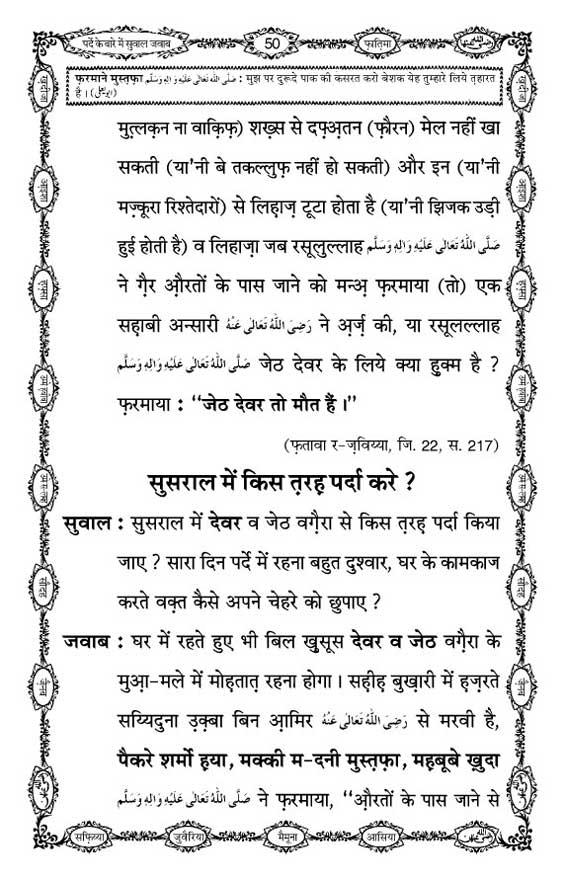 पर्दे के बारे में सुवाल जवाब
50
फ़ातिमा
फ़रमाने मुस्तफ़ा صَلَّى اللهُ تَعَالٰى عَلَيْهِ وَاٰلِهٖ وَسَلَّم : मुझ पर दुरूदे पाक की कसरत करो बेशक येह तुम्हारे लिये त़हारत
है । (ابویعلی)
मुत़्लक़न ना वाक़िफ़) शख़्स से दफ़्अ़तन (फ़ौरन) मेल नहीं खा
सकती (या'नी बे तकल्लुफ़ नहीं हो सकती) और इन (या'नी
मज़्कूरा रिश्तेदारों) से लिहाज़ टूटा होता है (या'नी झिजक उड़ी
हुई होती है) व लिहाज़ा जब रसूलुल्लाह صَلَّى اللهُ تَعَالٰى عَلَيْهِ وَاٰلِهٖ وَسَلَّم
ने ग़ैर औ़रतों के पास जाने को मन्अ़ फ़रमाया (तो) एक
सह़ाबी अन्सारी رَضِىَ اللهُ تَعَالٰى عَنْهُ ने अ़र्ज़ की, या रसूलल्लाह
صَلَّى اللهُ تَعَالٰى عَلَيْهِ وَاٰلِهٖ وَسَلَّم जेठ देवर के लिये क्या हुक्म है ?
फ़रमाया : ‘‘जेठ देवर तो मौत हैं ।’’
(फ़तावा र-ज़विय्या, जि. 22, स. 217)
सुसराल में किस त़रह़ पर्दा करे ?
सुवाल : सुसराल में देवर व जेठ वग़ैरा से किस त़रह़ पर्दा किया
जाए ? सारा दिन पर्दे में रहना बहुत दुश्वार, घर के कामकाज
करते वक़्त कैसे अपने चेहरे को छुपाए ?
जवाब : घर में रहते हुए भी बिल ख़ुसूस देवर व जेठ वग़ैरा के
मुआ़-मले में मोह़तात़ रहना होगा । सह़ीह़ बुख़ारी में ह़ज़रते
सय्यिदुना उ़क़्बा बिन आ़मिर رَضِىَ اللهُ تَعَالٰى عَنْهُ से मरवी है,
पैकरे शर्मो ह़या, मक्की म-दनी मुस्त़फ़ा, मह़बूबे ख़ुदा
صَلَّى اللهُ تَعَالٰى عَلَيْهِ وَاٰلِهٖ وَسَلَّم ने फ़रमाया, ‘‘औ़रतों के पास जाने से
सफ़िय्या
जुवैरिया
मैमूना
आसिया